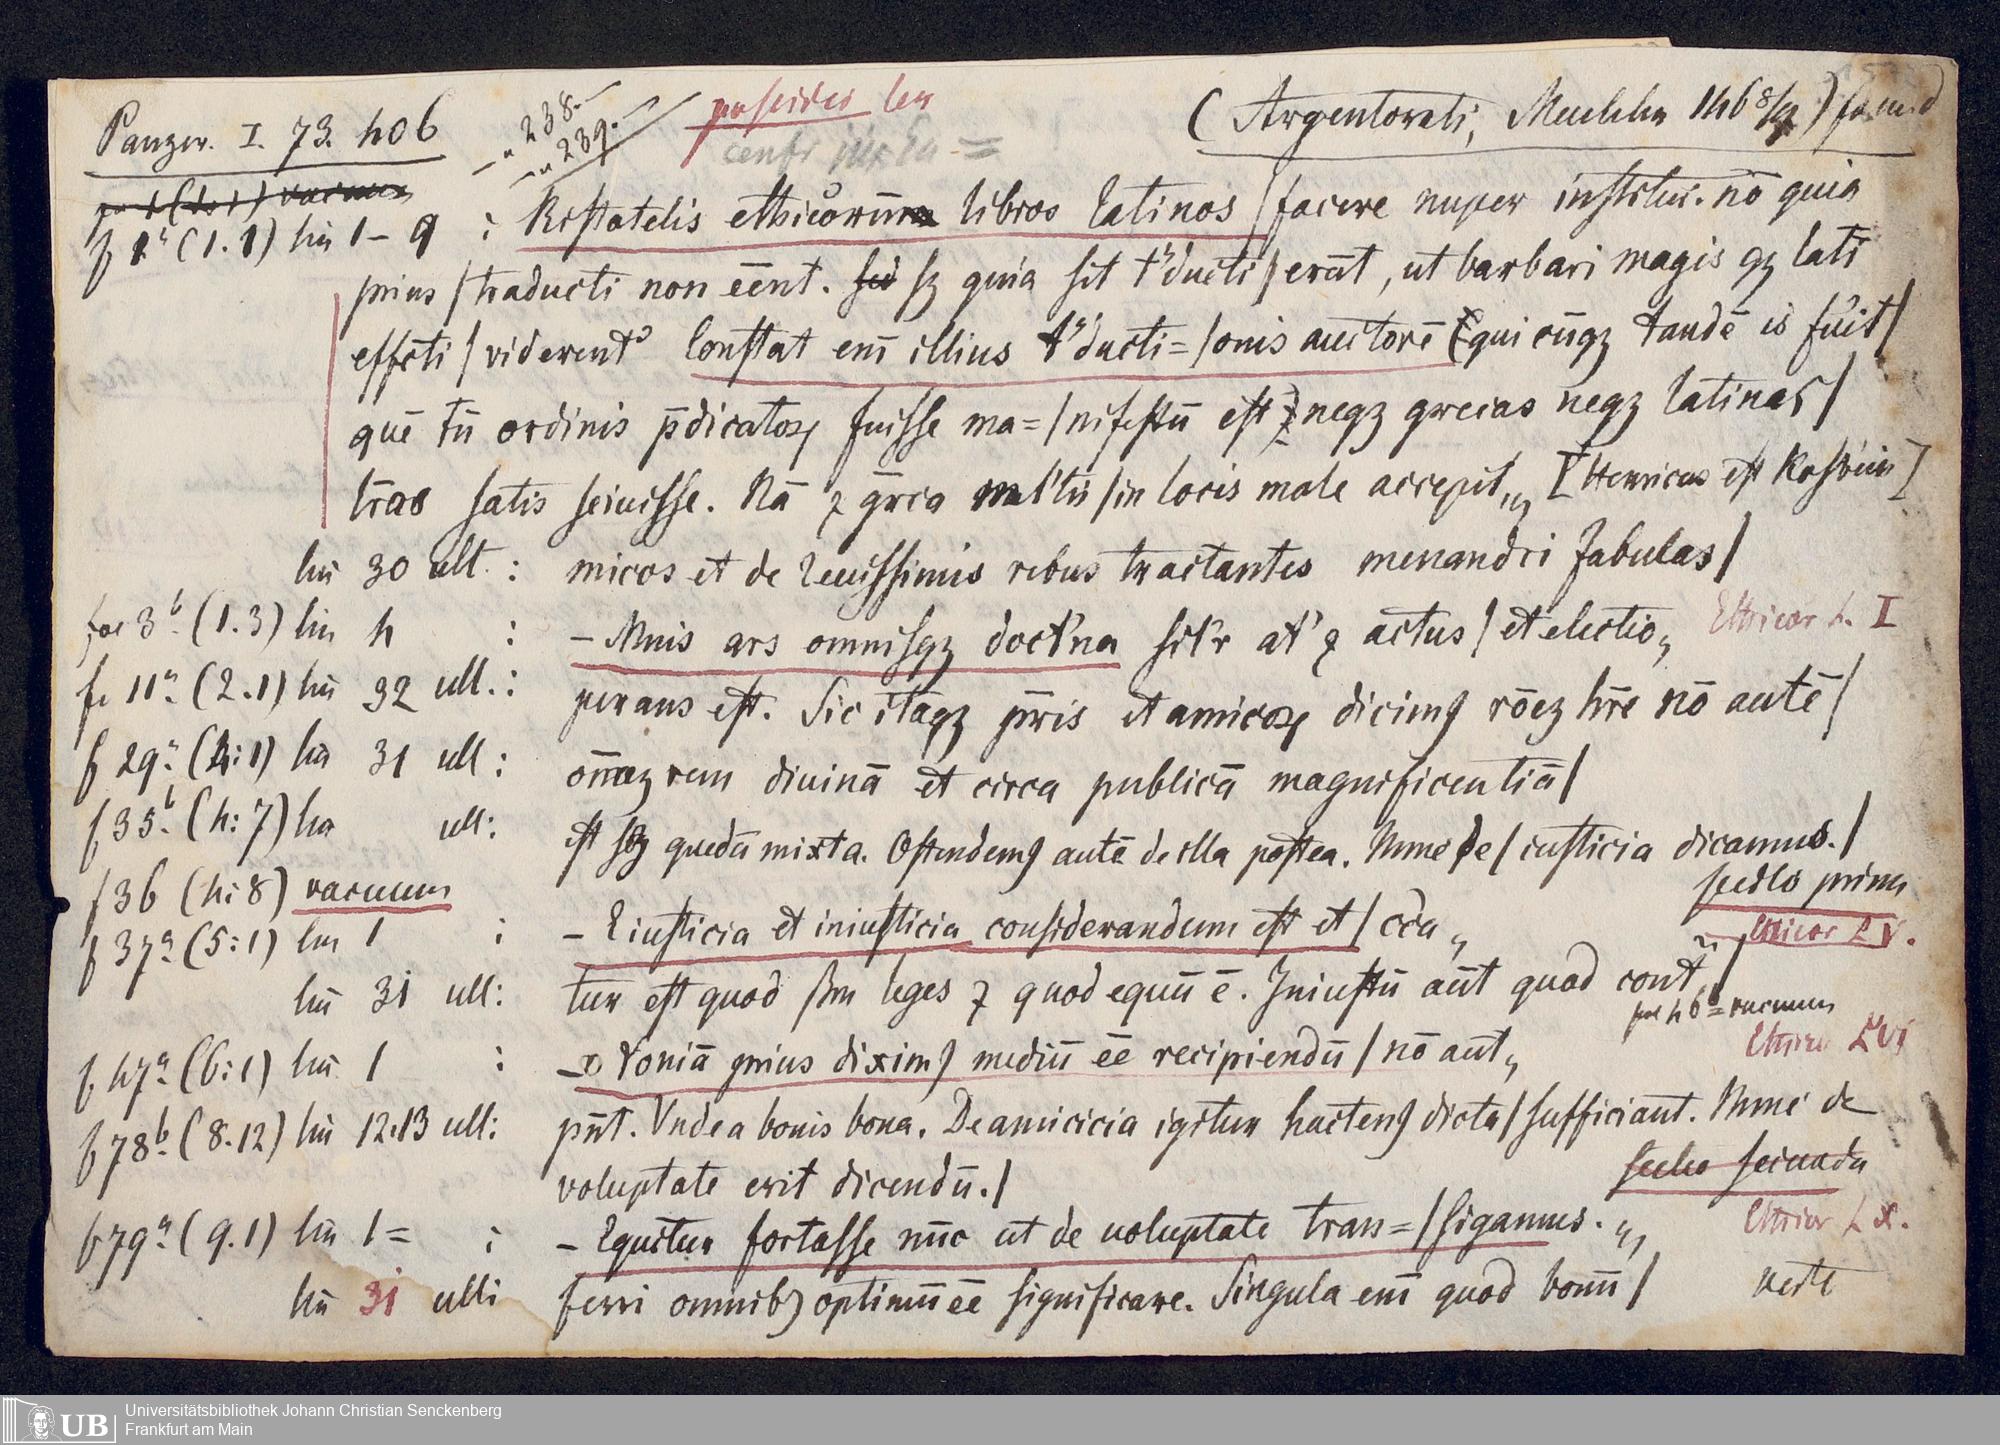 Panzer. I. 73. 406
„ 238.
„ 239.
(Argentorati, Mentelin 146 8/9)
f 1ᵃ (1.1) lin 1-9 : Ristotelis ethicoruꝫ libros latinos / facere nuper institui. nō quia
prius / traducti non eēnt. sꝫ quia sit t'ducti / erāt, ut barbari magis qꝫ lati
effecti / viderent' Constat eni illius t'ducti= / onis auctorē (quicūqꝫ tandē is fuit /
quē tū ordinis p̄dicatoꝝ fuisse ma= / nifestū est) neqꝫ grecas neqꝫ latinas /
lr̄as satis sciuisse. Nā ⁊ grēca ml'tis / in locis male accepit„ [Henricus est Kosbein]
lin 30 ult. : micos et de leuissimis rebus tractantes menandri fabulas /
fol 3ᵇ (1.3) lin 4 : - Mnis ars omnisqꝫ doct'na sil'r at' ⁊ actus / et electio„ Ethicor L. I
f. 11ᵃ (2.1) lin 32 ult. : perans est. Sic itaqꝫ p̄ris et amicoꝝ dicimꝰ rōeꝫ hr̄e nō autē /
f 29ᵃ (4:1) lin 31 ult : om̄eꝫ rem diuinā et circa publicā magnificentiā /
f 35ᵇ (4:7) lin ult: est sꝫ quedā mixta. Ostendemꝰ autē de illa postea. Nunc de / iusticia dicamus. /
f 36 (4:8) vacuum
f 37ᵃ (5:1) lin 1 : - E iusticia et iniusticia considerandum est et / cc̄a „ Ethicor L V.
lin 31 ult: tur est quod scdm leges ⁊ quod equū ē. Iniustū aūt quod cont /
fol 46ᵇ = vacuum
f 47ᵃ (6:1) lin 1 : - Voniā prius diximꝰ mediū eē recipiendū / nō aūt„ Ethicor L VI
f 78ᵇ (8.12) lin 12.13 ult: pn̄t. Vnde a bonis bona. De amicicia igitur hactenꝰ dicta / sufficiant. Nunc de
voluptate erit dicendū. /
f 79ᵃ (9.1) lin 1= : - Equitur fortasse nūc ut de uoluptate trans= / sigamus. „ Ethicor L X.
lin 31 ult: ferri omnibꝰ optimū eē significare. Singula eni quod bonū / verte
UB Universitätsbibliothek Johann Christian Senckenberg
Frankfurt am Main